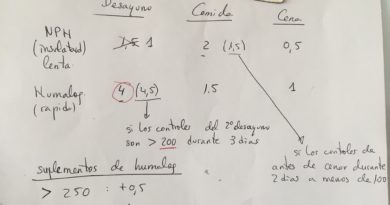 Desayuno Comida Cena
NPN 1,5 1 2 (1,5) 0,5
(insulatad)
lenta
Humalog 4 (4,5) 1.5 1
(rapida)
si los controles del 2º desayuno
son > 200 durante 3 dias
si los controles de
antes de cenar durante
2 dias a menos de 100
suplementos de humalog
> 250 : +0,5